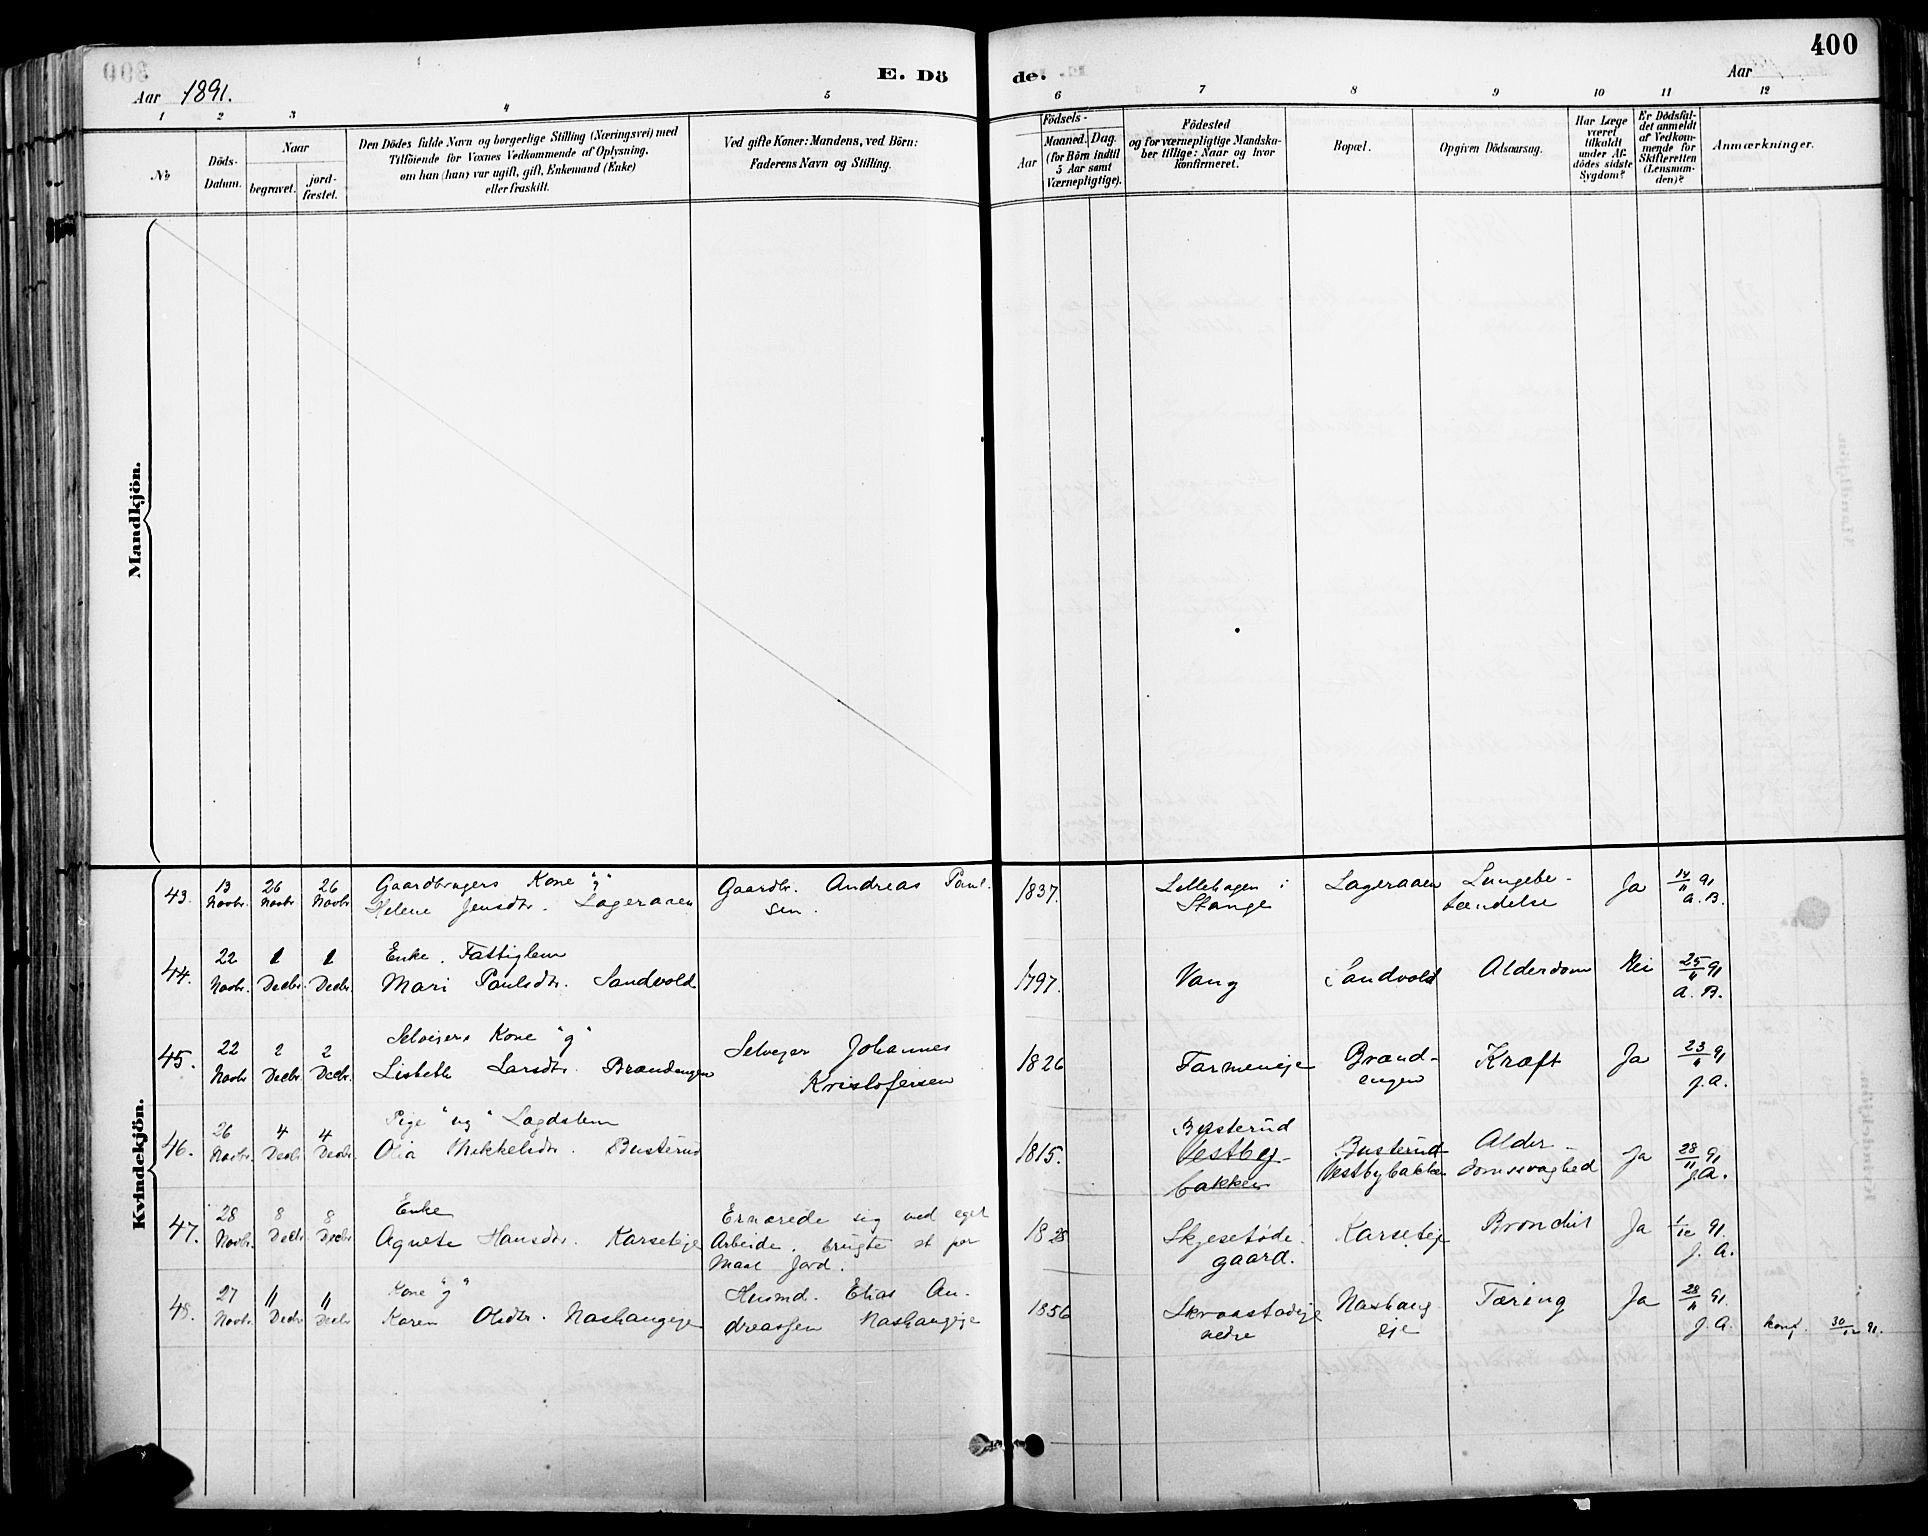 400
Aar 1891.
E. Dö
de.
Aar
1
2
3
4
5
6
7
8
9
10
11
12
No
Döds-
Datum.
Naar
begravet.
jord-
fæstet.
Den Dödes fulde Navn og borgerlige Stilling (Næringsvei) med
Tilföiende for Voxnes Vedkommende af Oplysning,
om han (hun) var ugift, gift, Enkemand (Enke)
eller fraskilt.
Ved gifte Koner: Mandens, ved Börn:
Faderens Navn og Stilling.
Födsels-
Aar
Maaned.
Dag.
(for Börn indtil
5 Aar samt
Værnepligtige).
Födested
og for værnepligtige Mandska-
ber tillige: Naar og hvor
konfirmeret.
Bopæl.
Opgiven Dödsaarsag.
Har Læge
været
tilkaldt
under Af-
dödes sidste
Sygdom?
Er Dödsfal-
det anmeldt
af Vedkom-
mende for
Skifteretten
(Lensman-
den)?
Anmærkninger.
Mandkjön.
Kvindekjön.
43. 13 Novbr. 26 Novbr. 26 Novbr.
Gaardbrugers Kone "g"
Helene Jensdtr. Lageraaen
Gaardbr. Andreas Paul-
sen.
1837.
Lillehagen i
Stange
Lageraaen
Lungebe-
tændelse
Ja
14/11 91
A. B.
44. 22 Novbr. 1 Decbr. 1 Decbr.
Enke. Fattiglem
Mari Paulsdtr. Sandvold
1797.
Vang
Sandvold
Alderdom
Nei
25/11 91
A. B.
45. 22 Novbr. 2 Decbr. 2 Decbr.
Selveiers Kone "g"
Lisbeth Larsdtr. Brændengen
Selveier Johannes
Kristofersen
1826
Farmeneje
Brænd-
engen
Kræft
Ja
23/11 91
J. A.
46. 26 Novbr. 4 Decbr. 4 Decbr.
Pige "ug" Lægdslem
Olia Mikkelsdtr. Busterud
1815.
Busterud
Vestby-
bakken
Busterud
Vestbybakken
Alder-
domssvaghed
Ja
28/11 91
J. A.
47. 28 Novbr. 8 Decbr. 8 Decbr.
Enke
Agnete Hansdtr. Karseteje
Ernærede sig ved eget
Arbeide. brugte et par
Maal Jord.
1828
Skjesetøde-
gaard.
Karseteje
Brøndit
Ja
1/12 91.
J. A.
48. 27 Novbr. 11 Decbr. 11 Decbr.
Kone "g"
Karen Olsdtr. Nashaugeje
Husmd. Elias An-
dreassen Nashaugeje
1856
Skraastadeje
nedre
Nashaug
eje
Tæring
Ja
28/11 91.
J. A.
konf. 30/12 91.